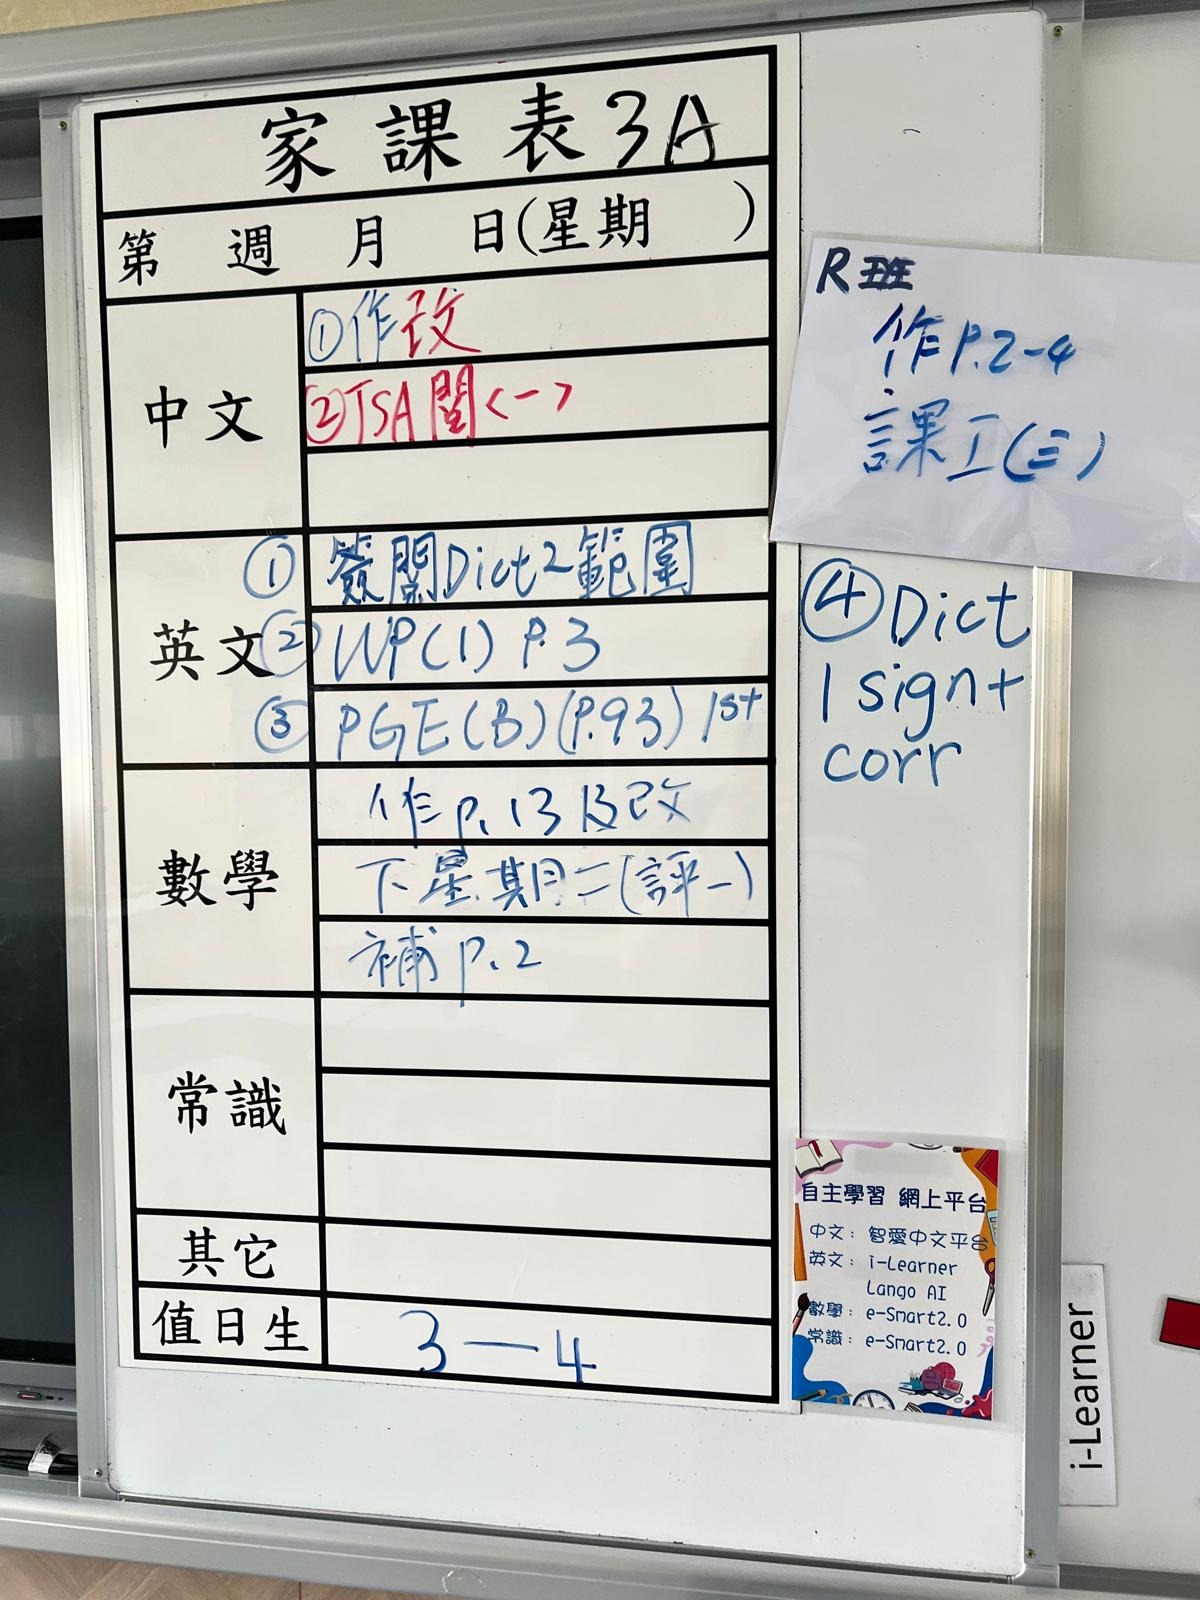 家課表 3A
第 週 月 日(星期 )
中文
①作改
②TSA閱<一>
英文
① 簽閱Dict2範圍
② WP(1) P.3
③ PGE(B)(P.93) 1st
④ Dict
1 sign+
corr
數學
作P.13及改
下星期二(評一)
補P.2
常識
其它
值日生
3—4
R班
作P.2-4
課工(三)
自主學習 網上平台
中文: 智愛中文平台
英文: i-Learner
Lango AI
數學: e-Smart2.0
常識: e-Smart2.0
i-Learner